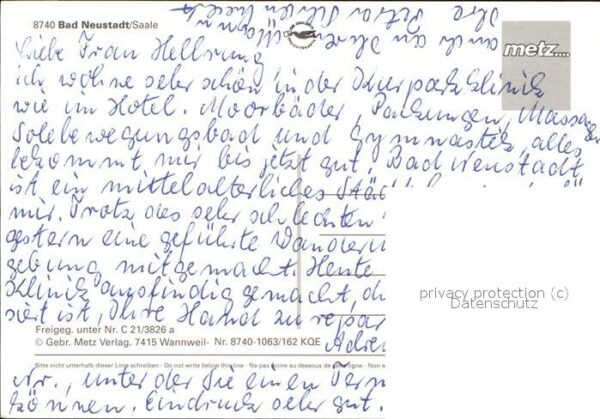 8740 Bad Neustadt/Saale
metz....
Liebe Frau Hellrung
ich wohne sehr schön in der Kurparkklinik
wie im Hotel. Moorbäder, Packungen, Massagen
Solebewegungsbad und Gymnastik, alles
bekommt mir bis jetzt gut. Bad Neustadt,
ist ein mittelalterliches
mir. Trotz des sehr schlechten
gestern eine geführte
gebung mitgemacht. Heute
Klinik ausfindig gemacht,
siert ist, Ihre Hand zu
Freigeg. unter Nr. C 21/3826 a
© Gebr. Metz Verlag. 7415 Wannweil- Nr. 8740-1063/162 KQE
Bitte nicht unterhalb dieser Linie schreiben - Do not write below this line - Ne pas écrire au dessous de cette ligne - Non
Nr., unter der Sie einen
können. Eindruck sehr gut.
auch an Ihren
Ihre Petra
privacy protection (c)
Datenschutz